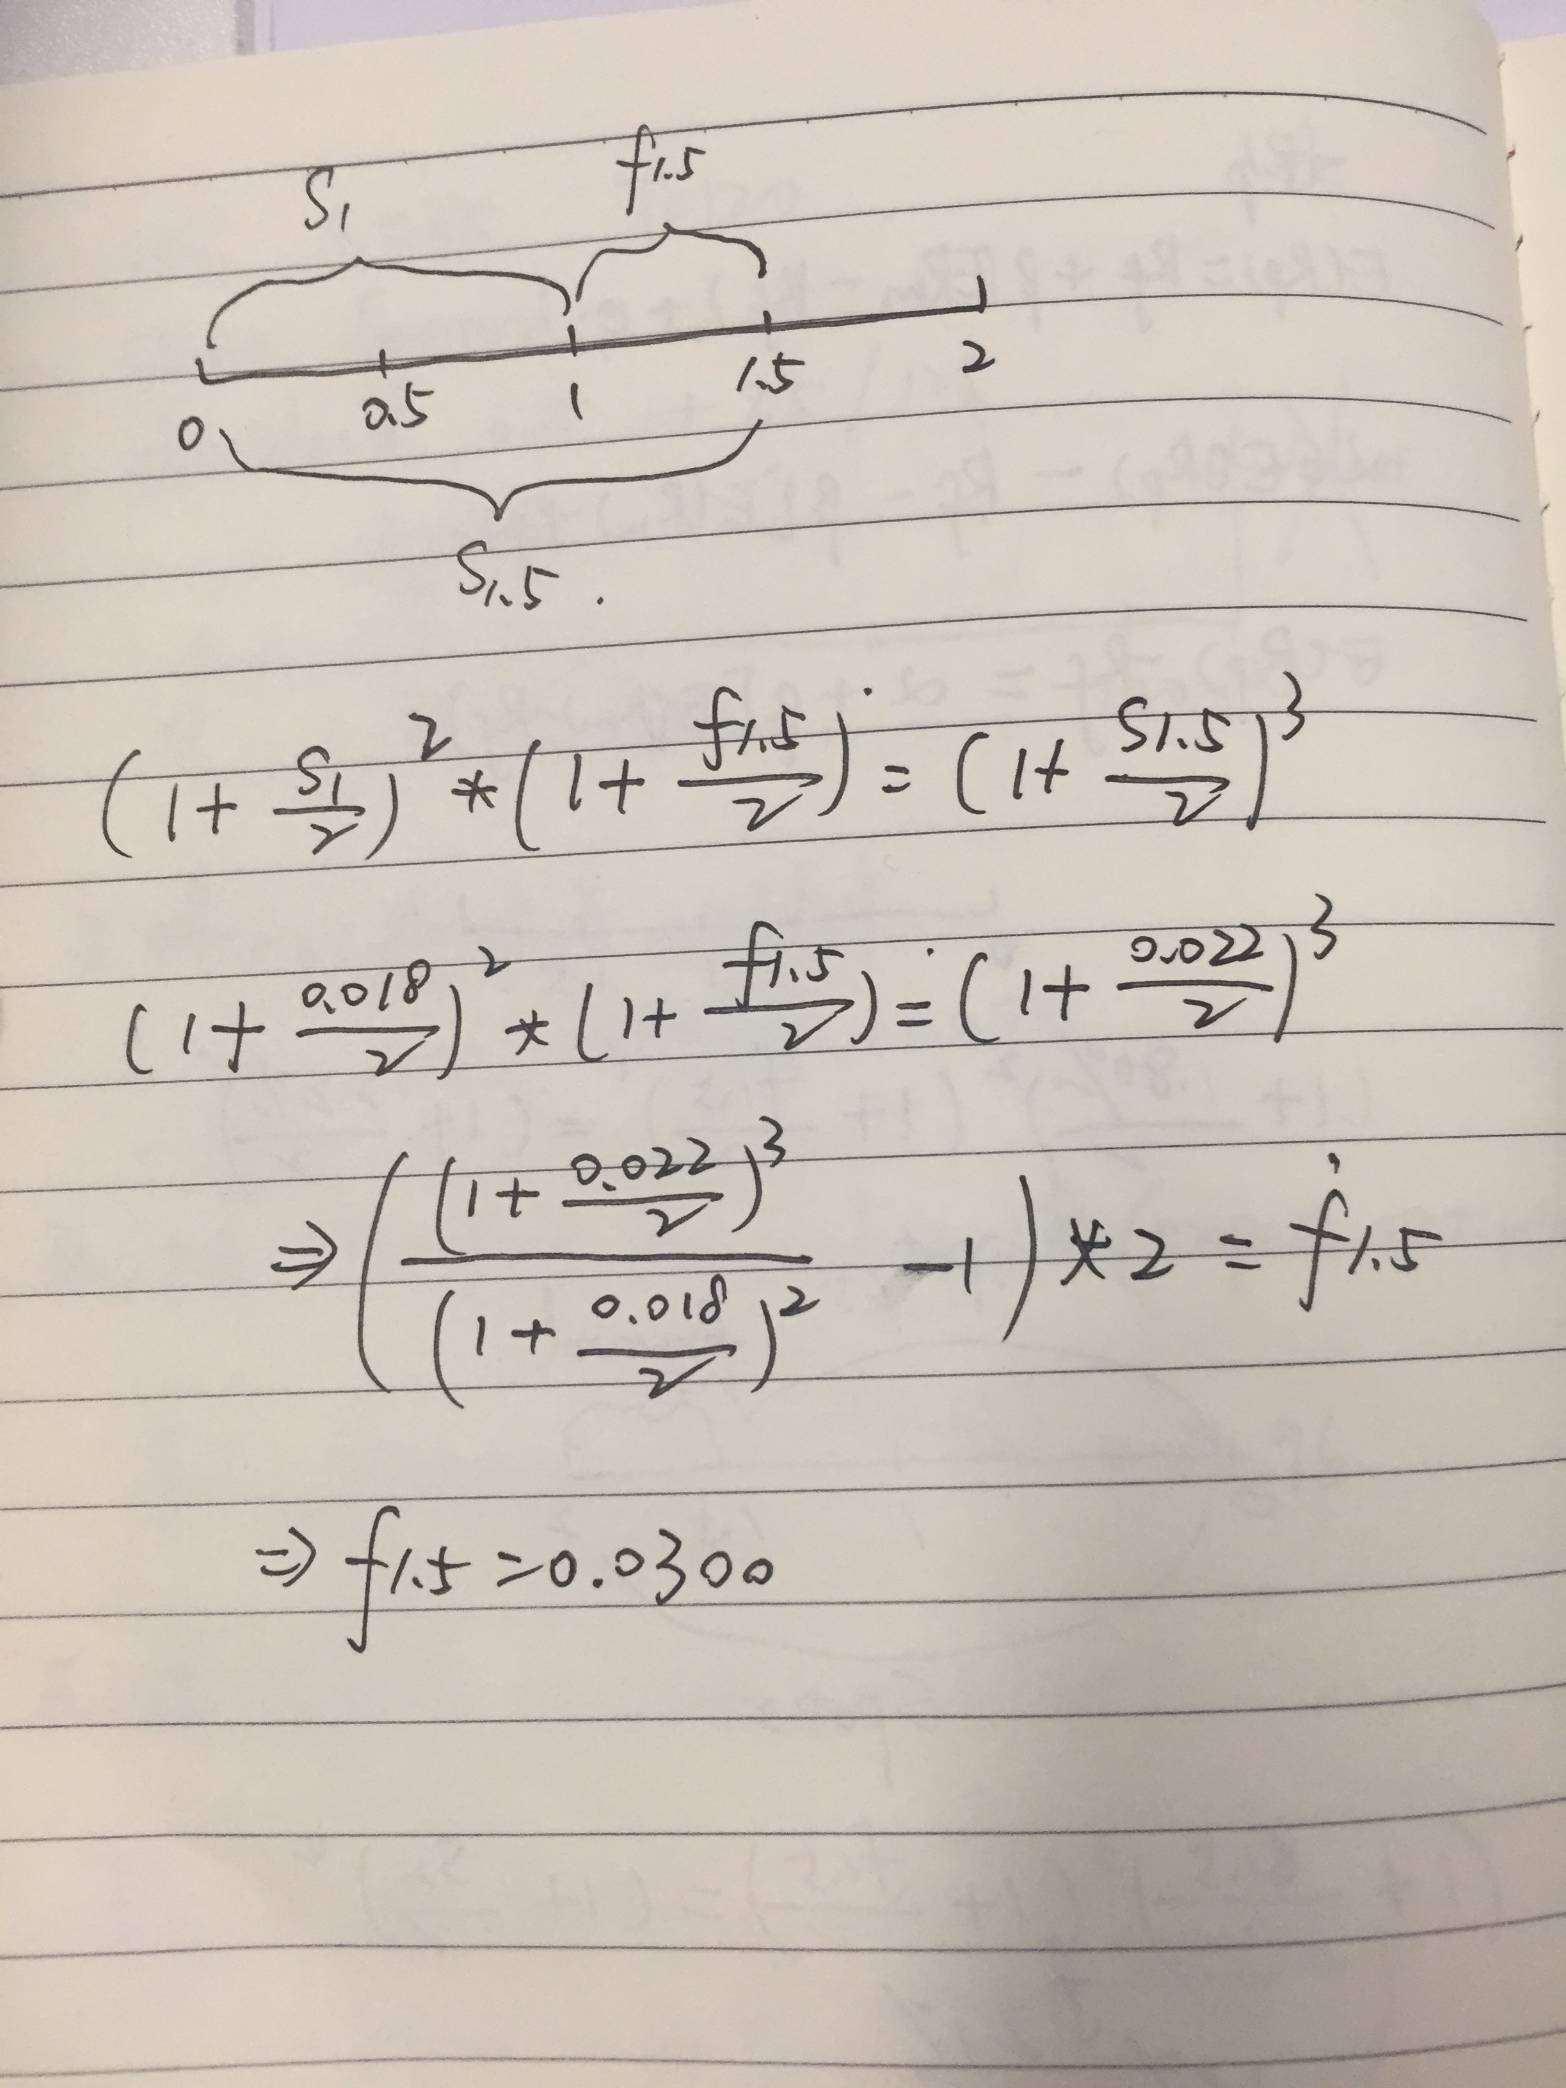 S₁ f₁.₅
0 0.5 1 1.5 2
S₁.₅ .
(1 + S₁/2)² * (1 + f₁.₅/2) = (1 + S₁.₅/2)³
(1 + 0.018/2)² * (1 + f₁.₅/2) = (1 + 0.022/2)³
⇒ ((1 + 0.022/2)³ / (1 + 0.018/2)² − 1) * 2 = f₁.₅
⇒ f₁.₅ = 0.0300